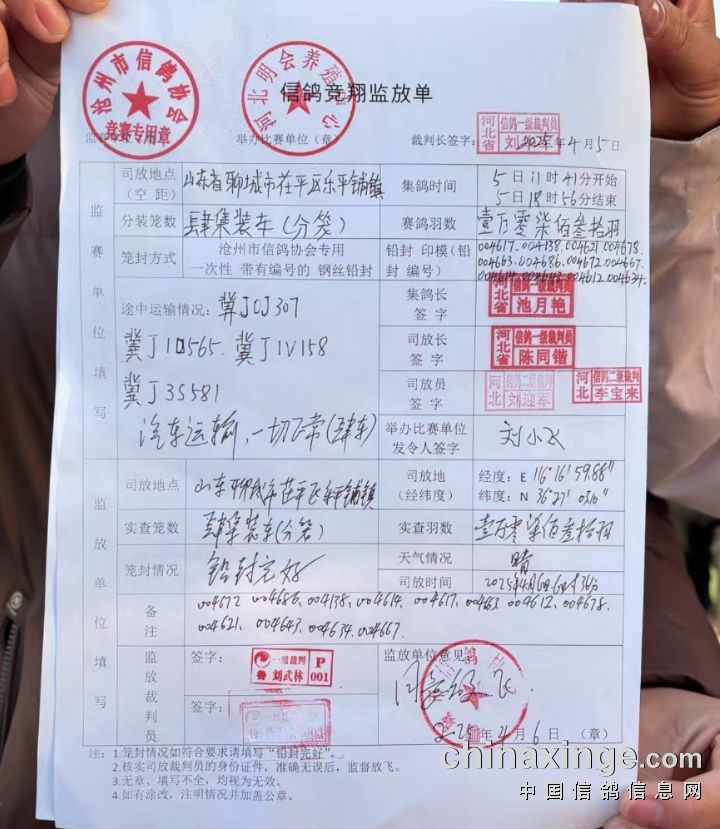 沧州市信鸽协会
竞赛专用章
信鸽竞翔监放单
举办比赛单位（章）
裁判长签字：
河北省 信鸽一级裁判员
2025年4月5日
监赛单位填写
司放地点（空 距）
山东省聊城市茌平区乐平铺镇
集鸽时间
5日11时41分开始
5日18时56分结束
分装笼数
肆集装车（分笼）
赛鸽羽数
壹万零柒佰叁拾羽
笼封方式
沧州市信鸽协会专用
一次性 带有编号的 钢丝铅封
铅封 印模（铅封 编号）
004617.004138.004621.004678.
004663.004686.004672.004667.
004614.004643.004612.004634.
途中运输情况：冀J0J307
冀J1D565.冀J1V158
冀J3S581
汽车运输，一切正常（肆车）
集鸽长签 字
河北省 信鸽一级裁判员 池月艳
司放长签 字
河北省 信鸽一级裁判员 陈同锴
司放员签 字
河北 信鸽二级裁判 刘迎军
河北 信鸽二级裁判 李宝来
举办比赛单位发令人签字
刘小飞
监放单位填写
司放地点
山东聊城市茌平区乐平铺镇
司放地（经纬度）
经度：E 116°16′59.88″
纬度：N 36°27′
实查笼数
肆集装车（分笼）
实查羽数
壹万零柒佰叁拾羽
笼封情况
铅封完好
天气情况
晴
司放时间
2025年4月6日
备注
004672 004686.004138.004614.004617.004663 004612.004678.
004621.004643.004634.004667.
监放裁判员
签字：
鲁 一级裁判 刘武林 P 001
签字：
监放单位意见：
同意放飞
2025年4月6日（章）
注：1.笼封情况如符合要求请填写“铅封完好”。
2.核实司放裁判员的身份证件，准确无误后，监督放飞。
3.无章、填写不全，均视为无效。
4.如有涂改，注明情况并加盖公章。
chinaxinge.com
中国信鸽信息网